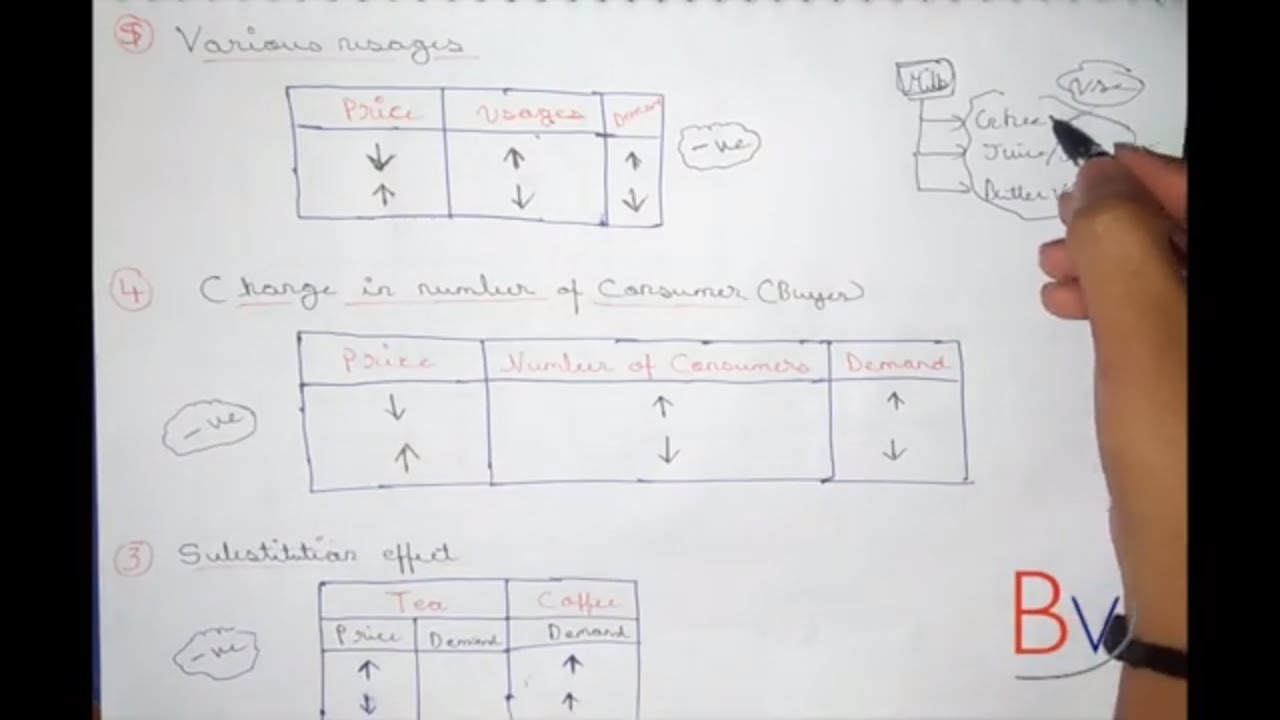 5 Various usages
Price Usages Demand
↓ ↑ ↑
↑ ↓ ↓
-ve
Milk
Use
Juice/
Butter
4 Change in number of Consumer (Buyer)
Price Number of Consumers Demand
↓ ↑ ↑
↑ ↓ ↓
-ve
3 Substitution effect
Tea Coffee
Price Demand Demand
↑ ↑
↓ ↑
-ve
Bv